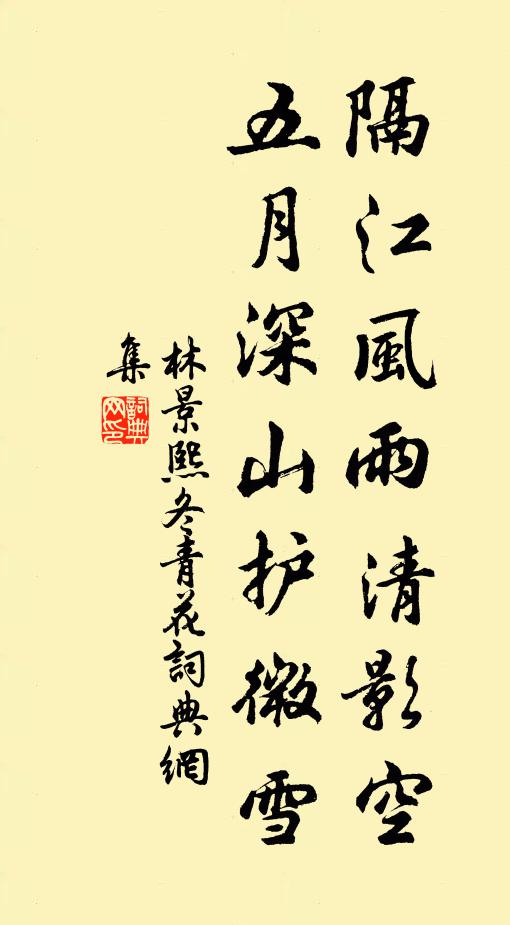 隔江風雨清影空
五月深山护微雪
林景熙冬青花詞典網
集
詞典網印